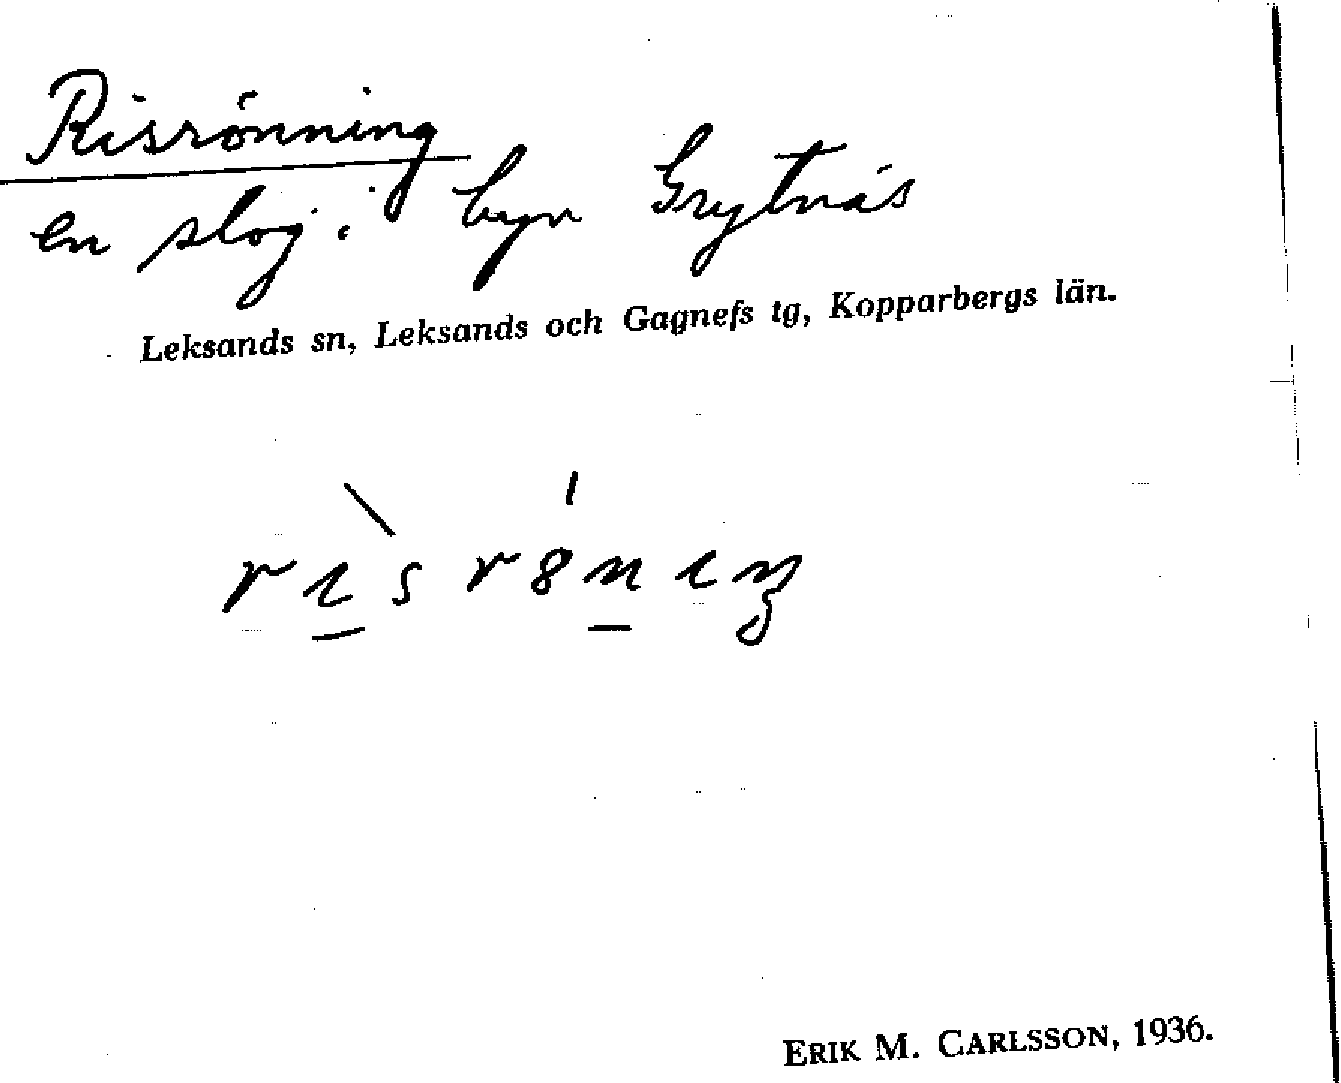 Risrönning
en slog i byn Grytnäs
Leksands sn, Leksands och Gagnefs tg, Kopparbergs län.
ERIK M. CARLSSON, 1936.